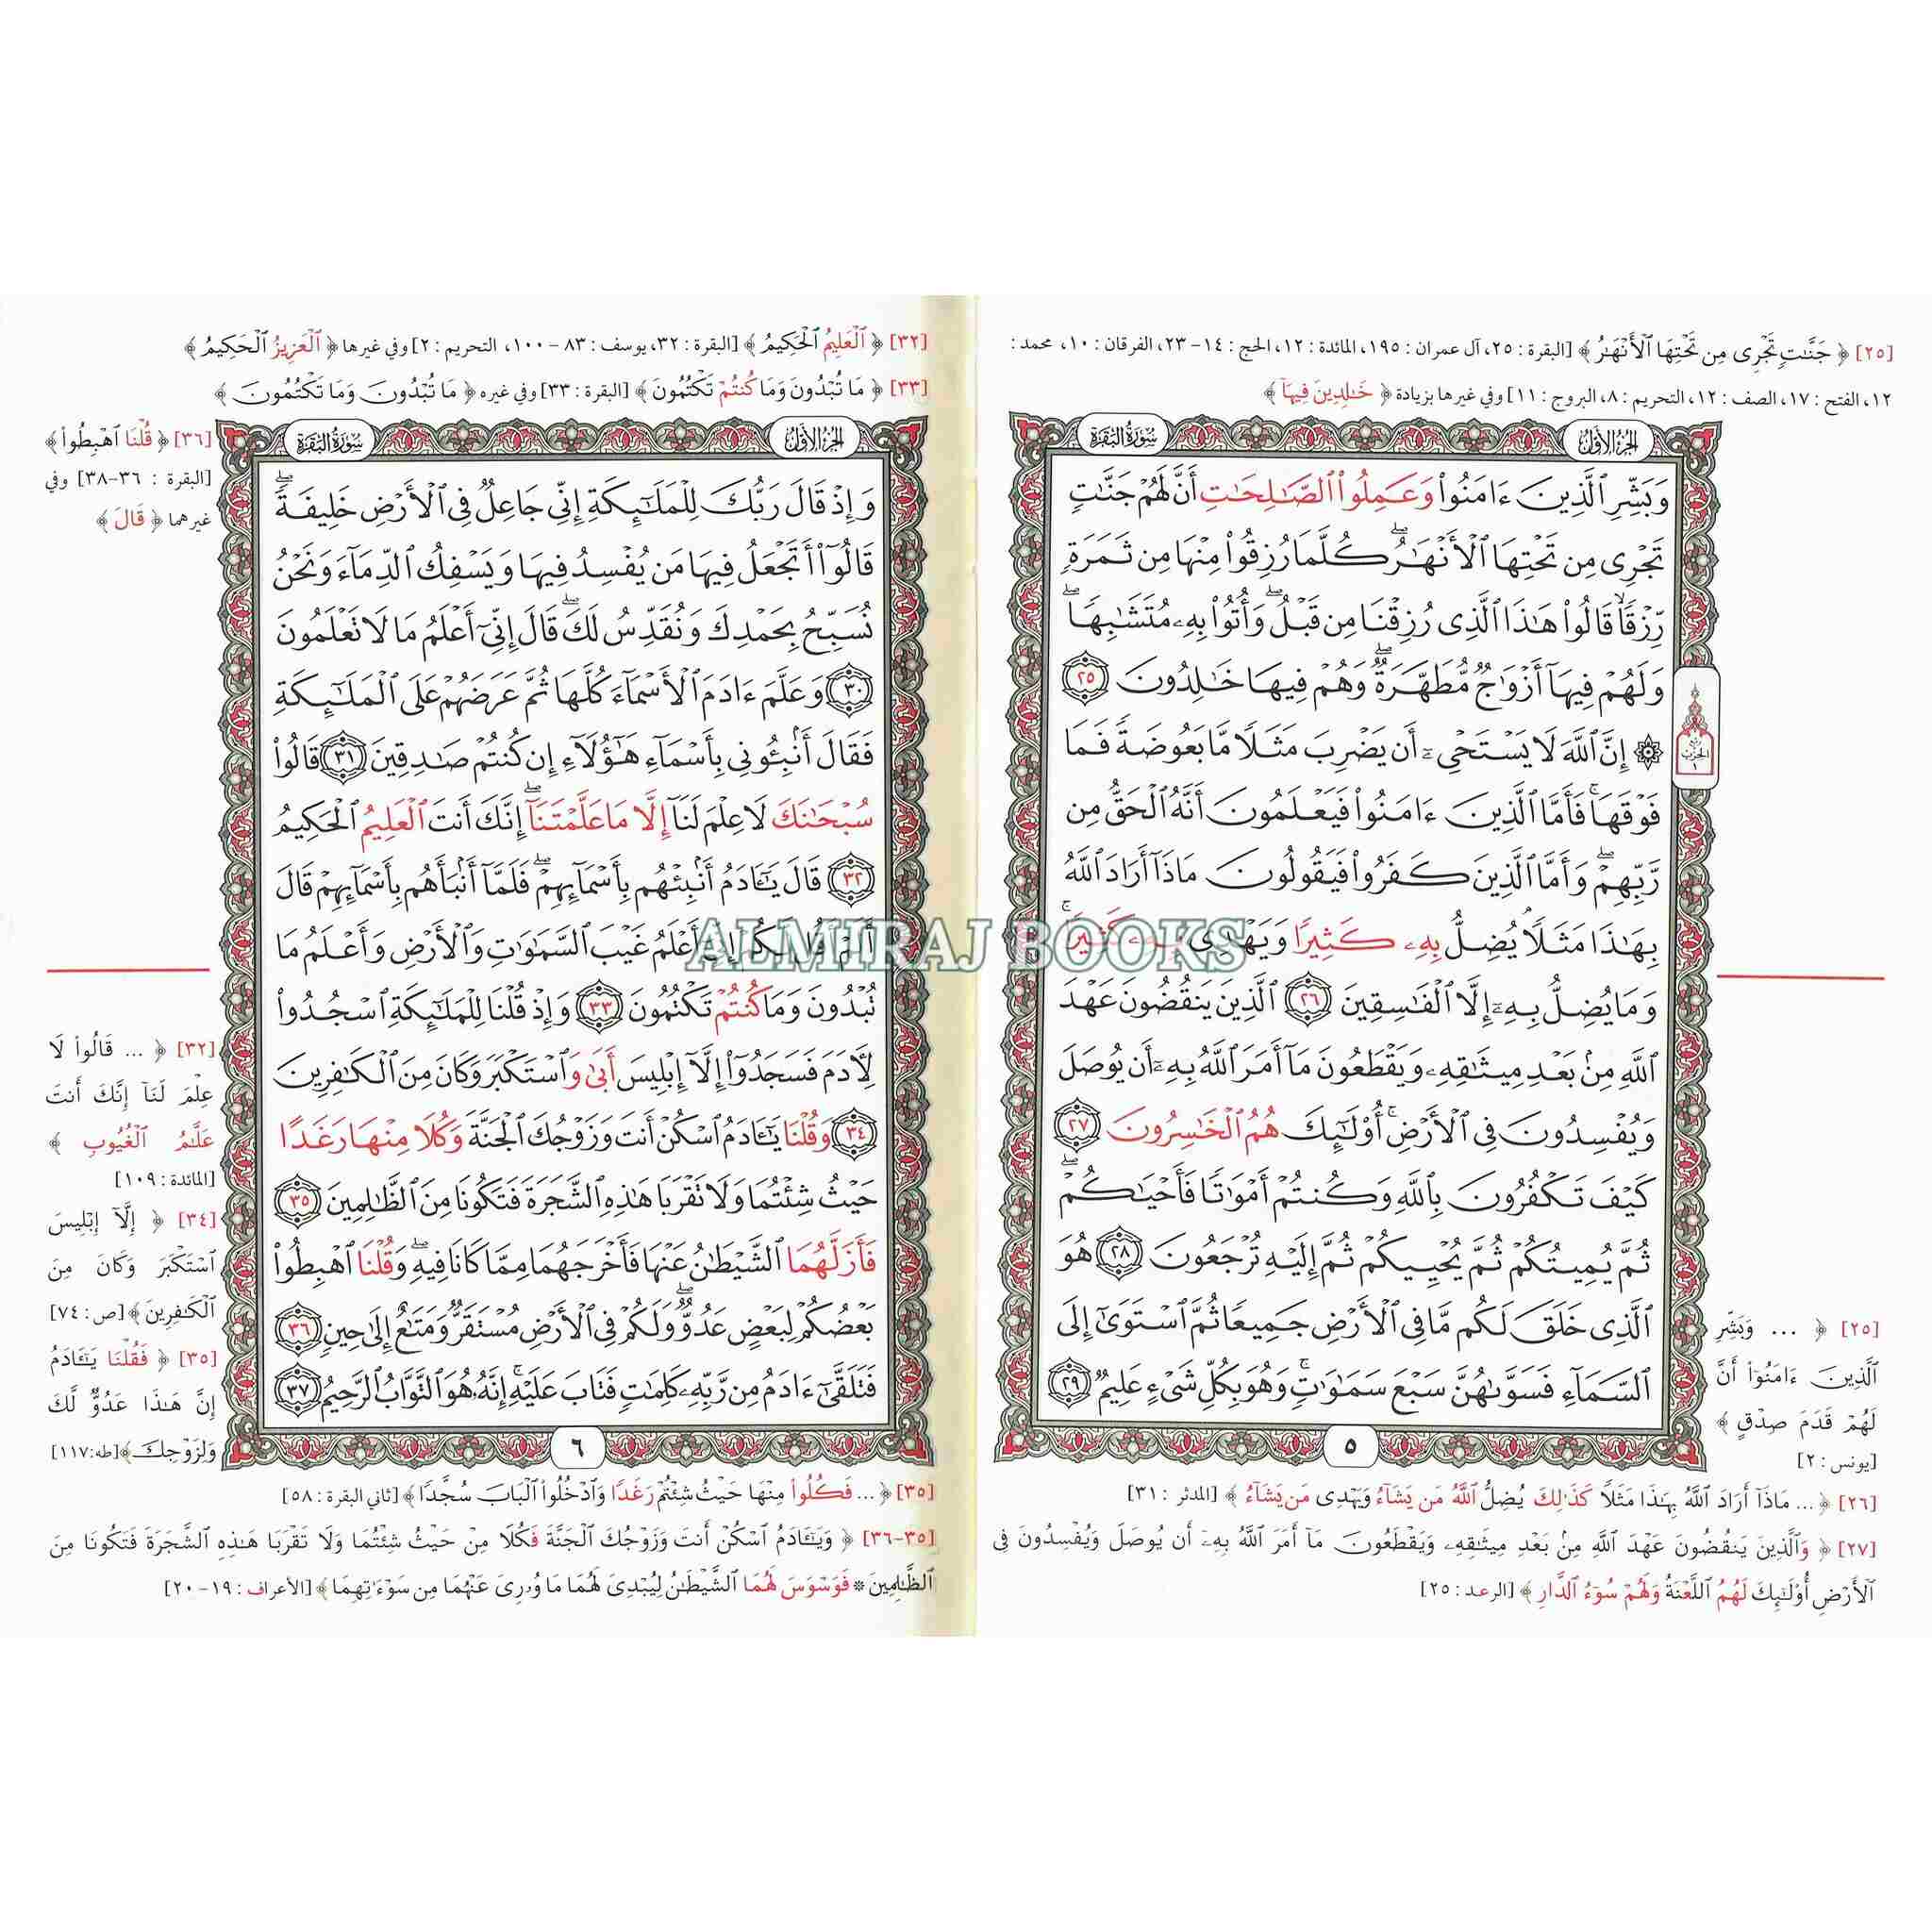 [٢٥] ﴿ جَنَّٰتٍ تَجْرِى مِن تَحْتِهَا ٱلْأَنْهَٰرُ ﴾ [البقرة : ٢٥، آل عمران : ١٩٥، المائدة : ١٢، الحج : ١٤- ٢٣، الفرقان : ١٠، محمد :
١٢، الفتح : ١٧، الصف : ١٢، التحريم : ٨، البروج : ١١] وفي غيرها بزيادة ﴿ خَٰلِدِينَ فِيهَآ ﴾
الجزء الأول
سورة البقرة
وَبَشِّرِ ٱلَّذِينَ ءَامَنُوا۟ وَعَمِلُوا۟ ٱلصَّٰلِحَٰتِ أَنَّ لَهُمْ جَنَّٰتٍ
تَجْرِى مِن تَحْتِهَا ٱلْأَنْهَٰرُ ۖ كُلَّمَا رُزِقُوا۟ مِنْهَا مِن ثَمَرَةٍ
رِّزْقًا ۙ قَالُوا۟ هَٰذَا ٱلَّذِى رُزِقْنَا مِن قَبْلُ ۖ وَأُتُوا۟ بِهِۦ مُتَشَٰبِهًا ۖ
وَلَهُمْ فِيهَآ أَزْوَٰجٌ مُّطَهَّرَةٌ ۖ وَهُمْ فِيهَا خَٰلِدُونَ ٢٥
۞ إِنَّ ٱللَّهَ لَا يَسْتَحْىِۦٓ أَن يَضْرِبَ مَثَلًا مَّا بَعُوضَةً فَمَا
فَوْقَهَا ۚ فَأَمَّا ٱلَّذِينَ ءَامَنُوا۟ فَيَعْلَمُونَ أَنَّهُ ٱلْحَقُّ مِن
رَّبِّهِمْ ۖ وَأَمَّا ٱلَّذِينَ كَفَرُوا۟ فَيَقُولُونَ مَاذَآ أَرَادَ ٱللَّهُ
بِهَٰذَا مَثَلًا ۘ يُضِلُّ بِهِۦ كَثِيرًا وَيَهْدِى بِهِۦ كَثِيرًا ۚ
وَمَا يُضِلُّ بِهِۦٓ إِلَّا ٱلْفَٰسِقِينَ ٢٦ ٱلَّذِينَ يَنقُضُونَ عَهْدَ
ٱللَّهِ مِنۢ بَعْدِ مِيثَٰقِهِۦ وَيَقْطَعُونَ مَآ أَمَرَ ٱللَّهُ بِهِۦٓ أَن يُوصَلَ
وَيُفْسِدُونَ فِى ٱلْأَرْضِ ۚ أُو۟لَٰٓئِكَ هُمُ ٱلْخَٰسِرُونَ ٢٧
كَيْفَ تَكْفُرُونَ بِٱللَّهِ وَكُنتُمْ أَمْوَٰتًا فَأَحْيَٰكُمْ ۖ
ثُمَّ يُمِيتُكُمْ ثُمَّ يُحْيِيكُمْ ثُمَّ إِلَيْهِ تُرْجَعُونَ ٢٨ هُوَ
ٱلَّذِى خَلَقَ لَكُم مَّا فِى ٱلْأَرْضِ جَمِيعًا ثُمَّ ٱسْتَوَىٰٓ إِلَى
ٱلسَّمَآءِ فَسَوَّىٰهُنَّ سَبْعَ سَمَٰوَٰتٍ ۚ وَهُوَ بِكُلِّ شَىْءٍ عَلِيمٌ ٢٩
٥
الحزب ١
[٢٥] ﴿ ... وَبَشِّرِ
ٱلَّذِينَ ءَامَنُوٓا۟ أَنَّ
لَهُمْ قَدَمَ صِدْقٍ ﴾
[يونس : ٢]
[٢٦] ﴿ ... مَاذَآ أَرَادَ ٱللَّهُ بِهَٰذَا مَثَلًا كَذَٰلِكَ يُضِلُّ ٱللَّهُ مَن يَشَآءُ وَيَهْدِى مَن يَشَآءُ ﴾ [المدثر : ٣١]
[٢٧] ﴿ وَٱلَّذِينَ يَنقُضُونَ عَهْدَ ٱللَّهِ مِنۢ بَعْدِ مِيثَٰقِهِۦ وَيَقْطَعُونَ مَآ أَمَرَ ٱللَّهُ بِهِۦٓ أَن يُوصَلَ وَيُفْسِدُونَ فِى
ٱلْأَرْضِ أُو۟لَٰٓئِكَ لَهُمُ ٱللَّعْنَةُ وَلَهُمْ سُوٓءُ ٱلدَّارِ ﴾ [الرعد : ٢٥]
[٣٢] ﴿ ٱلْعَلِيمُ ٱلْحَكِيمُ ﴾ [البقرة : ٣٢، يوسف : ٨٣ - ١٠٠، التحريم : ٢] وفي غيرها ﴿ ٱلْعَزِيزُ ٱلْحَكِيمُ ﴾
[٣٣] ﴿ مَا تُبْدُونَ وَمَا كُنتُمْ تَكْتُمُونَ ﴾ [البقرة : ٣٣] وفي غيره ﴿ مَا تُبْدُونَ وَمَا تَكْتُمُونَ ﴾
[٣٦] ﴿ قُلْنَا ٱهْبِطُوا۟ ﴾
[البقرة : ٣٦-٣٨] وفي
غيرهما ﴿ قَالَ ﴾
الجزء الأول
سورة البقرة
وَإِذْ قَالَ رَبُّكَ لِلْمَلَٰٓئِكَةِ إِنِّى جَاعِلٌ فِى ٱلْأَرْضِ خَلِيفَةً ۖ
قَالُوٓا۟ أَتَجْعَلُ فِيهَا مَن يُفْسِدُ فِيهَا وَيَسْفِكُ ٱلدِّمَآءَ وَنَحْنُ
نُسَبِّحُ بِحَمْدِكَ وَنُقَدِّسُ لَكَ ۖ قَالَ إِنِّىٓ أَعْلَمُ مَا لَا تَعْلَمُونَ
٣٠ وَعَلَّمَ ءَادَمَ ٱلْأَسْمَآءَ كُلَّهَا ثُمَّ عَرَضَهُمْ عَلَى ٱلْمَلَٰٓئِكَةِ
فَقَالَ أَنۢبِـُٔونِى بِأَسْمَآءِ هَٰٓؤُلَآءِ إِن كُنتُمْ صَٰدِقِينَ ٣١ قَالُوا۟
سُبْحَٰنَكَ لَا عِلْمَ لَنَآ إِلَّا مَا عَلَّمْتَنَآ ۖ إِنَّكَ أَنتَ ٱلْعَلِيمُ ٱلْحَكِيمُ
٣٢ قَالَ يَٰٓـَٔادَمُ أَنۢبِئْهُم بِأَسْمَآئِهِمْ ۖ فَلَمَّآ أَنۢبَأَهُم بِأَسْمَآئِهِمْ قَالَ
أَلَمْ أَقُل لَّكُمْ إِنِّىٓ أَعْلَمُ غَيْبَ ٱلسَّمَٰوَٰتِ وَٱلْأَرْضِ وَأَعْلَمُ مَا
تُبْدُونَ وَمَا كُنتُمْ تَكْتُمُونَ ٣٣ وَإِذْ قُلْنَا لِلْمَلَٰٓئِكَةِ ٱسْجُدُوا۟
لِـَٔادَمَ فَسَجَدُوٓا۟ إِلَّآ إِبْلِيسَ أَبَىٰ وَٱسْتَكْبَرَ وَكَانَ مِنَ ٱلْكَٰفِرِينَ
٣٤ وَقُلْنَا يَٰٓـَٔادَمُ ٱسْكُنْ أَنتَ وَزَوْجُكَ ٱلْجَنَّةَ وَكُلَا مِنْهَا رَغَدًا
حَيْثُ شِئْتُمَا وَلَا تَقْرَبَا هَٰذِهِ ٱلشَّجَرَةَ فَتَكُونَا مِنَ ٱلظَّٰلِمِينَ ٣٥
فَأَزَلَّهُمَا ٱلشَّيْطَٰنُ عَنْهَا فَأَخْرَجَهُمَا مِمَّا كَانَا فِيهِ ۖ وَقُلْنَا ٱهْبِطُوا۟
بَعْضُكُمْ لِبَعْضٍ عَدُوٌّ ۖ وَلَكُمْ فِى ٱلْأَرْضِ مُسْتَقَرٌّ وَمَتَٰعٌ إِلَىٰ حِينٍ ٣٦
فَتَلَقَّىٰٓ ءَادَمُ مِن رَّبِّهِۦ كَلِمَٰتٍ فَتَابَ عَلَيْهِ ۚ إِنَّهُۥ هُوَ ٱلتَّوَّابُ ٱلرَّحِيمُ ٣٧
٦
[٣٢] ﴿ ... قَالُوا۟ لَا
عِلْمَ لَنَآ إِنَّكَ أَنتَ
عَلَّٰمُ ٱلْغُيُوبِ ﴾
[المائدة : ١٠٩]
[٣٤] ﴿ إِلَّآ إِبْلِيسَ
ٱسْتَكْبَرَ وَكَانَ مِنَ
ٱلْكَٰفِرِينَ ﴾ [ص : ٧٤]
[٣٥] ﴿ فَقُلْنَا يَٰٓـَٔادَمُ
إِنَّ هَٰذَا عَدُوٌّ لَّكَ
وَلِزَوْجِكَ ﴾ [طه: ١١٧]
[٣٥] ﴿ ... فَكُلُوا۟ مِنْهَا حَيْثُ شِئْتُمْ رَغَدًا وَٱدْخُلُوا۟ ٱلْبَابَ سُجَّدًا ﴾ [ثاني البقرة : ٥٨]
[٣٥-٣٦] ﴿ وَيَٰٓـَٔادَمُ ٱسْكُنْ أَنتَ وَزَوْجُكَ ٱلْجَنَّةَ فَكُلَا مِنْ حَيْثُ شِئْتُمَا وَلَا تَقْرَبَا هَٰذِهِ ٱلشَّجَرَةَ فَتَكُونَا مِنَ
ٱلظَّٰلِمِينَ * فَوَسْوَسَ لَهُمَا ٱلشَّيْطَٰنُ لِيُبْدِىَ لَهُمَا مَا وُۥرِىَ عَنْهُمَا مِن سَوْءَٰتِهِمَا ﴾ [الأعراف : ١٩ - ٢٠]
ALMIRAJ BOOKS